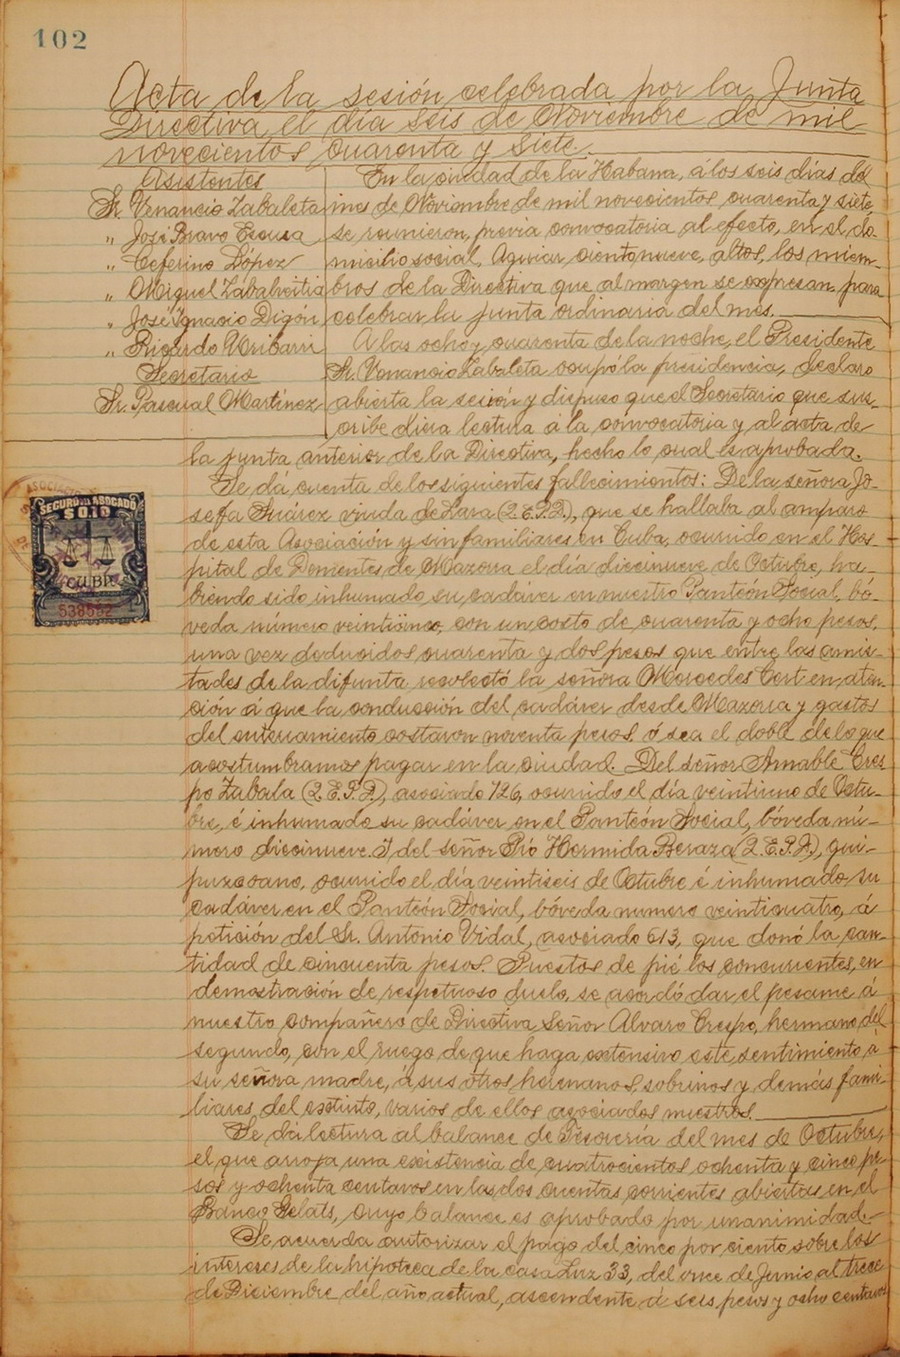 102
Acta de la sesión celebrada por la Junta
Directiva el día seis de Noviembre de mil
novecientos cuarenta y siete.
Asistentes
Sr. Venancio Zabaleta
" José Bravo
" Ceferino López
" Miguel Zabalveitia
" José Ignacio Digón
" Ricardo Uribarri
Secretario
Sr. Pascual Martínez
En la ciudad de la Habana, á los seis días del
mes de Noviembre de mil novecientos cuarenta y siete,
se reunieron, previa convocatoria al efecto, en el do-
micilio social, Aguiar ciento nueve, altos, los miem-
bros de la Directiva que al margen se expresan para
celebrar la junta ordinaria del mes.
A las ocho y cuarenta de la noche, el Presidente
Sr. Venancio Zabaleta ocupó la presidencia, declaro
abierta la sesión y dispuso que el Secretario que sus-
cribe diera lectura á la convocatoria y al acta de
la junta anterior de la Directiva, hecho lo cual es aprobada.
Se dá cuenta de los siguientes fallecimientos: De la señora Jo-
sefa Suárez viuda de Lara (Q.E.P.D.), que se hallaba al amparo
de esta Asociacion y sin familiares en Cuba, ocurrido en el Hos-
pital de Dementes de Mazorra el día diecinueve de Octubre, ha-
biendo sido inhumado su cadáver en nuestro Panteón Social, bó-
veda número veinticinco, con un costo de cuarenta y ocho pesos,
una vez deducidos cuarenta y dos pesos que entre las amis-
tades de la difunta recolectó la señora Mercedes Cert en aten-
ción á que la conducción del cadáver desde Mazorra y gastos
del enterramiento costaron noventa pesos ó sea el doble de lo que
acostumbramos pagar en la ciudad. Del señor Amable Cres-
po Zabala (Q.E.P.D.), asociado 126, ocurrido el día veintiuno de Octu-
bre, é inhumado su cadáver en el Panteón Social, bóveda nú-
mero diecinueve. Y del señor Pío Hermida Beraza (Q.E.P.D.), gui-
puzcoano, ocurrido el día veintiseis de Octubre é inhumado su
cadáver en el Panteón Social, bóveda numero veinticuatro, á
petición del Sr. Antonio Vidal, asociado 613, que donó la can-
tidad de cincuenta pesos. Puestos de pié los concurrentes, en
demostración de respetuoso duelo, se acordó dar el pesame á
nuestro compañero de Directiva Señor Alvaro Crespo, hermano del
segundo, con el ruego de que haga extensivo este sentimiento á
su señora madre, á sus otros hermanos, sobrinos y demás fami-
liares, del extinto, varios de ellos asociados nuestros.
Se dá lectura al balance de Tesorería del mes de Octubre,
el que arroja una existencia de cuatrocientos ochenta y cinco pe-
sos y ochenta centavos en las dos cuentas corrientes abiertas en el
Banco Gelats, cuyo balance es aprobado por unanimidad.
Se acuerda autorizar el pago del cinco por ciento sobre los
intereses de la hipoteca de la casa Luz 33, del once de Junio al trece
de Diciembre del año actual, ascendente á seis pesos y ocho centavos
SEGURO DEL ABOGADO
$0.10
CUBA